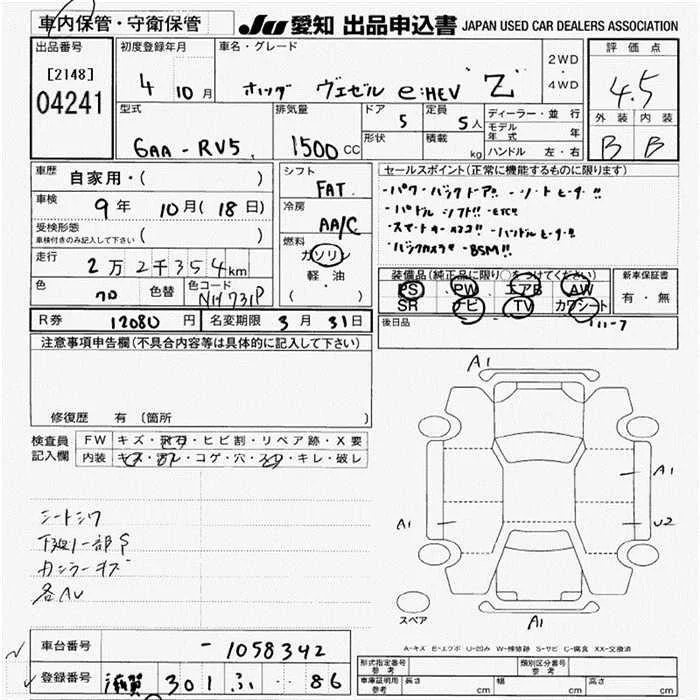 車内保管・守衛保管
JU 愛知 出品申込書 JAPAN USED CAR DEALERS ASSOCIATION
出品番号
[2148]
04241
初度登録年月
4 10月
車名・グレード
ホンダ ヴェゼル e:HEV Z
2WD
・
4WD
評価点
4.5
外装 内装
B B
型式
6AA-RV5
排気量
1500 CC
ドア
5
定員
5人
形状
積載
kg
ディーラー・並行
モデル年式 年
ハンドル 左・右
車歴 自家用・( )
車検 9年 10月(18日)
受検形態
車検付きのみ記入して下さい ( )
走行 2万2千354km
色
色替
色コード
NH731P
シフト
FAT
冷房
AA/C
燃料
ガソリン
軽油
( )
セールスポイント(正常に機能するものに限ります)
・パワーバックドア!! ・シートヒーター!!
・パドルシフト!! ・ETC!!
・ハンドルヒーター!!
・バックカメラ ・BSM!!
装備品(純正品に限り○をつけてください)
PS PW エアB AW
SR ナビ TV カワシート
新車保証書
有・無
後日品
R券 12080円 名変期限 3月31日
注意事項申告欄(不具合内容等は具体的に記入して下さい)
修復歴 有 (箇所 )
検査員記入欄
FW キズ・飛石・ヒビ割・リペア跡・X要
内装 キズ・汚レ・コゲ・穴・スレ・キレ・破レ
シートシワ
下廻り一部S
各AU
A1
A1
A1
U2
A1
スペア
A-キズ E-エクボ U-凹み W-補修跡 S-サビ C-腐食 XX-交換済
車台番号 -1058342
登録番号 滋賀 301 ふ ・・86
形式指定番号
参考
類別区分番号
参考
車庫証明用
参考
長さ cm 幅 cm 高さ cm